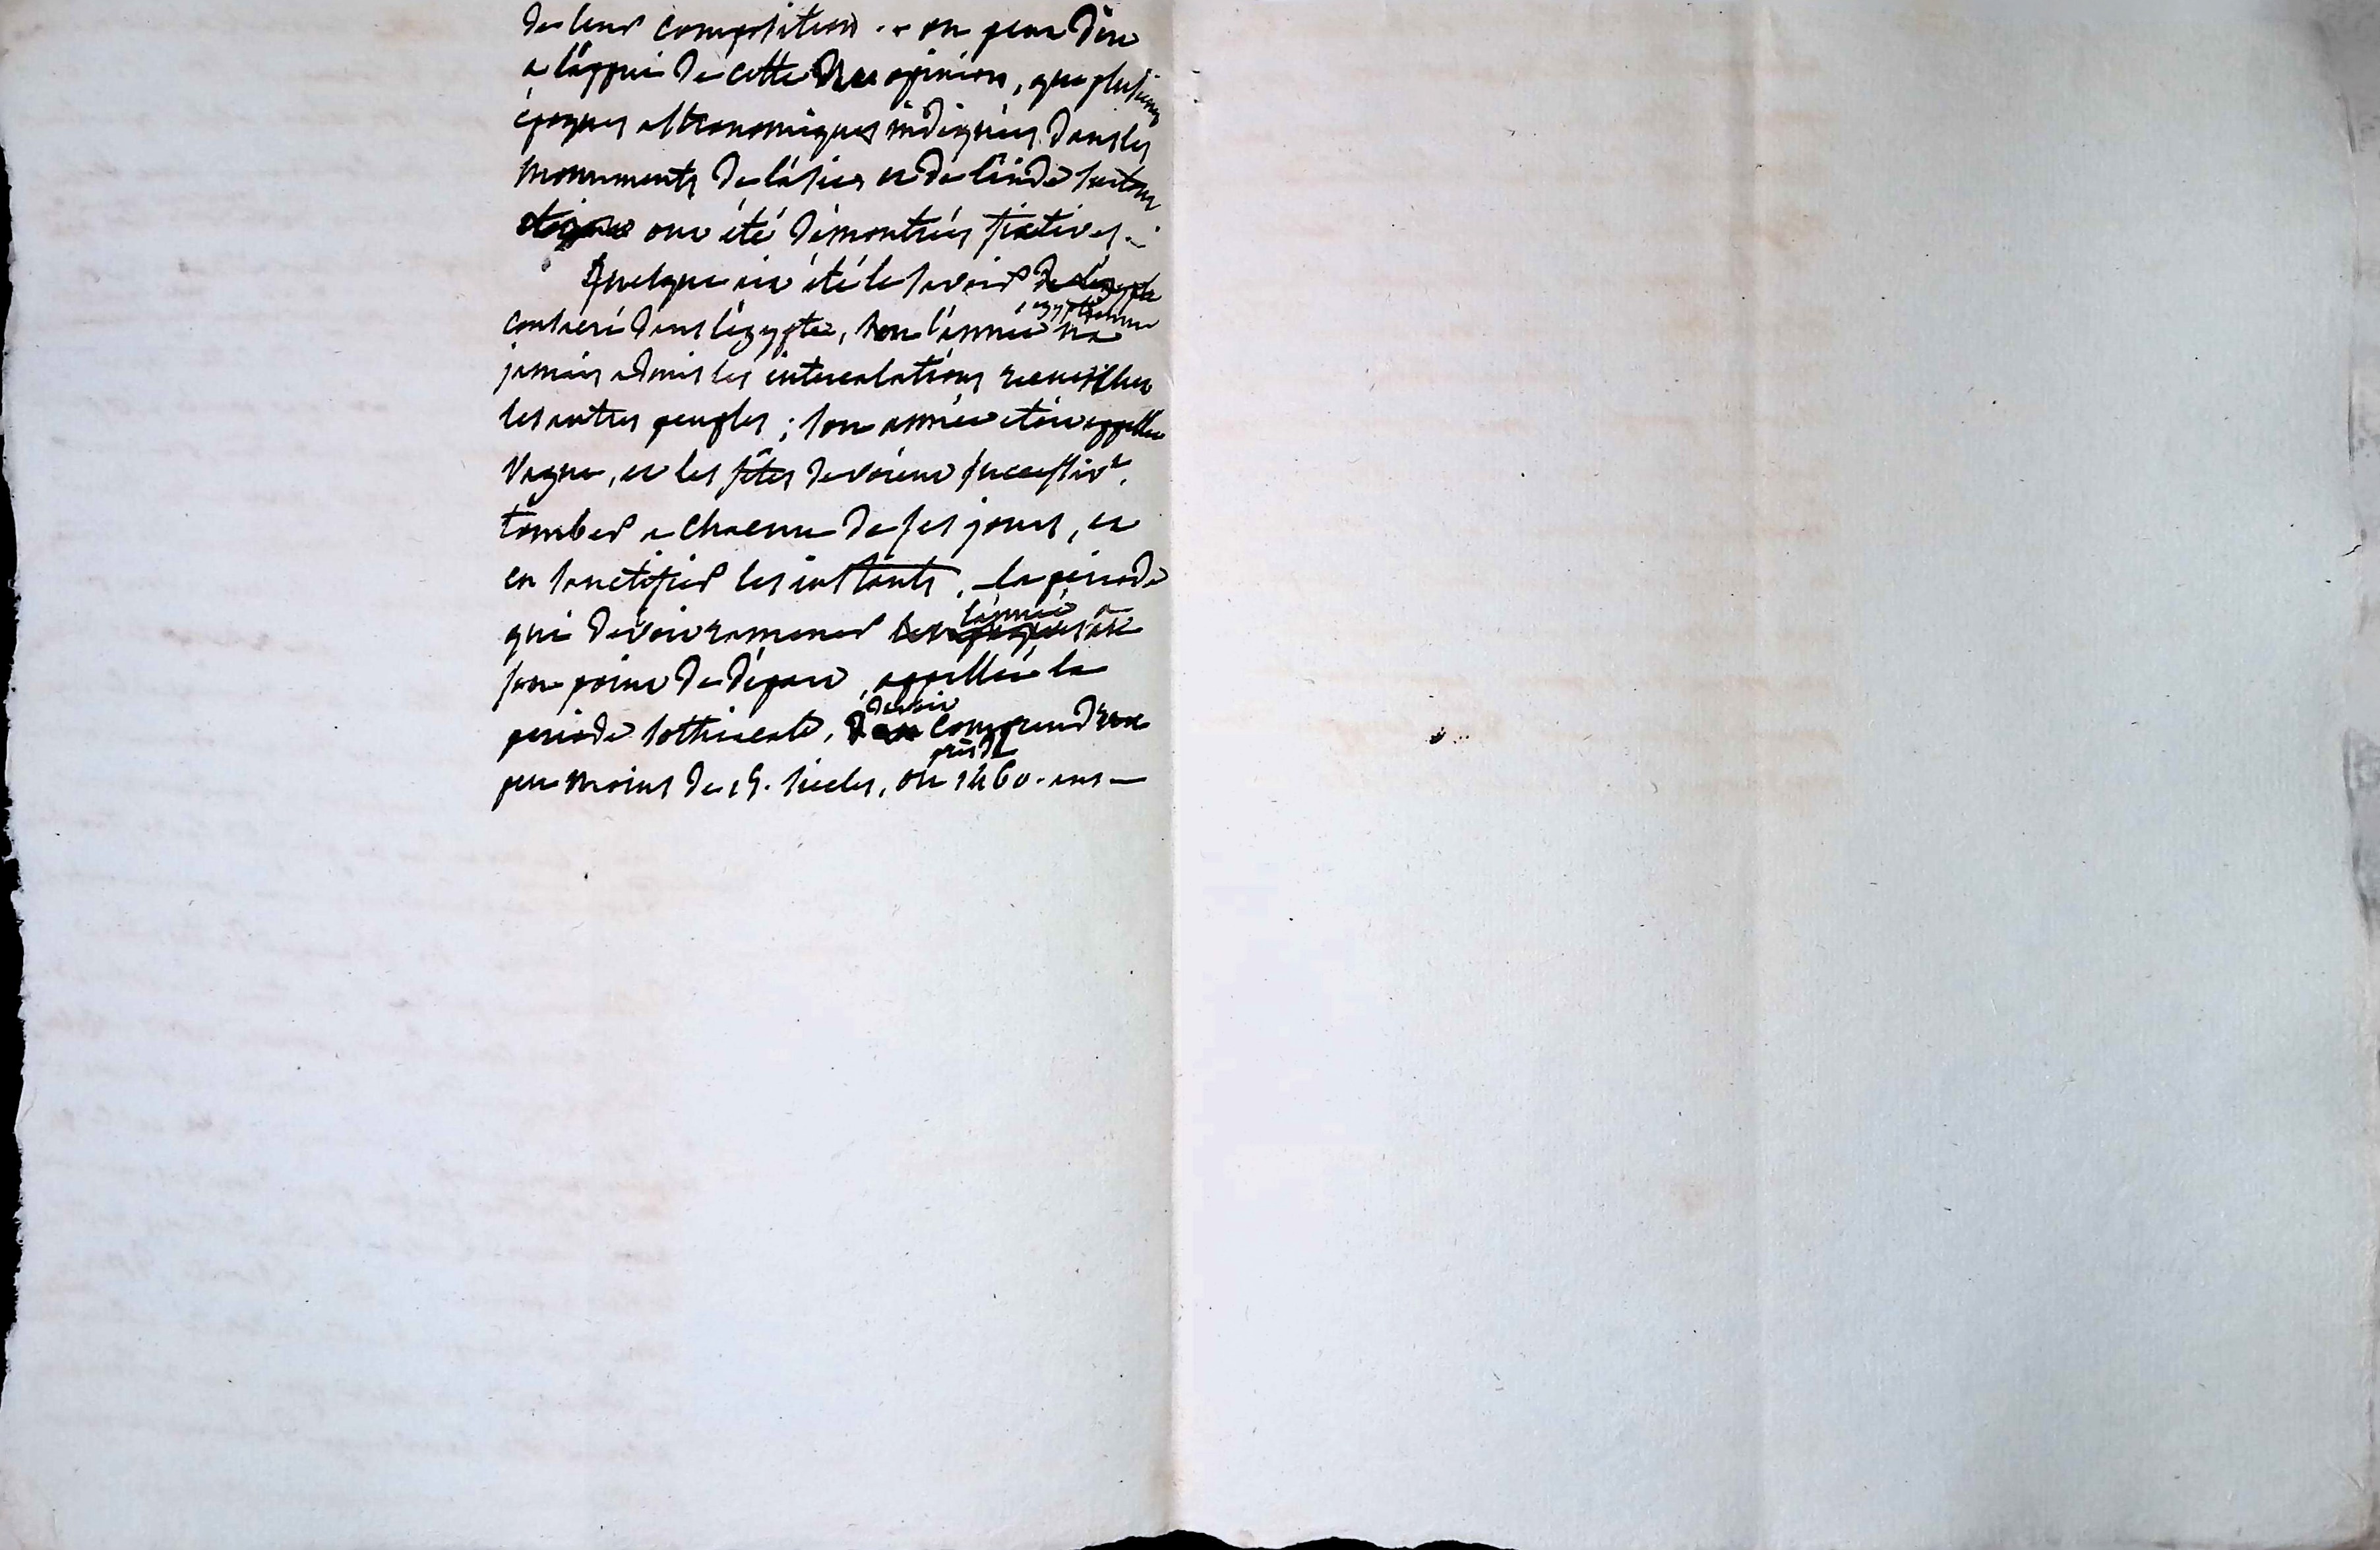 de leur composition. - on peut dire
a l'appui de cette opinion, que plusieurs
époques astronomiques indiquées dans les
monuments de l'asie et de l'inde surtout
ont été démontrées fictives. -
Quelque ait été le savoir de l'egypte
egyptienne
consacré dans l'egypte, l'année n'a
jamais admis les intercalations reçues chez
les autres peuples ; son année etoit appellée
vague, et les fêtes devoient successivt.
tomber a chacun de ses jours, et
en sanctifier les instants. la période
l'année a
qui devoit ramener les epoques
son point de départ, appellée la
devoit
periode sothiacale, comprendre un
près de
peu moins de 15. siecles, ou 1460. ans -